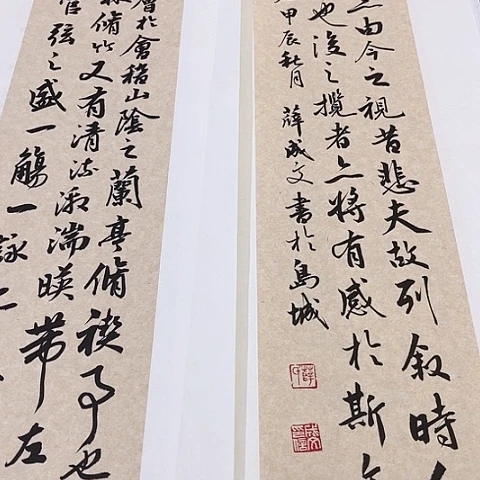 由今之視昔悲夫故列叙時
也後之攬者亦將有感於斯文
甲辰秋月薛成文書於島城
會於會稽山陰之蘭亭脩禊事也
林脩竹又有清流激湍暎帶左
管弦之盛一觴一詠